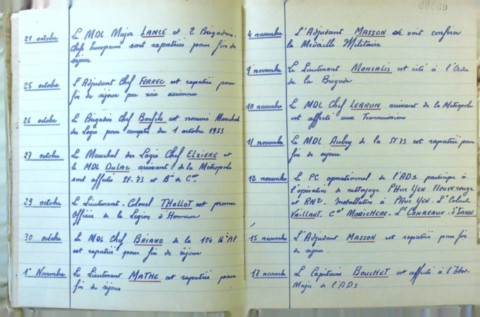 21 octobre Le MDL Major LANCE et 2 Brigadiers
Chefs Européens sont rapatriés pour fin de
séjour
25 octobre L'Adjudant Chef FERREC est rapatrié pour
fin de séjour par voie aérienne
26 octobre Le Brigadier Chef Boufils est nommé Maréchal
des Logis pour compter du 1 octobre 1953
27 octobre Le Maréchal des Logis Chef ELZIERE et
le MDL DULAC arrivant de la Métropole
sont affectés et
29 octobre Le Lieutenant-Colonel THOLLOT est promu
Officier de la Légion d'Honneur
30 octobre Le MDL Chef de la
est rapatrié pour fin de séjour
1er Novembre Le Lieutenant MATHE est rapatrié pour
fin de séjour
4 novembre L'Adjudant MASSON se voit conférer
la Médaille Militaire
9 novembre Le Lieutenant est cité à l'Ordre
de la Brigade
10 novembre Le MDL Chef LEBRUN arrivant de la Métropole
est affecté aux Transmissions
11 novembre Le MDL Aubry de la est rapatrié pour
fin de séjour
12 novembre Le PC opérationnel de l'ADS participe à
l'opération de nettoyage
et Installation à Le Colonel
Vaillant, Cne
15 novembre L'Adjudant MASSON est rapatrié pour fin
de séjour
17 novembre Le Capitaine BOUCHET est affecté à l'Etat-
Major de l'ADS